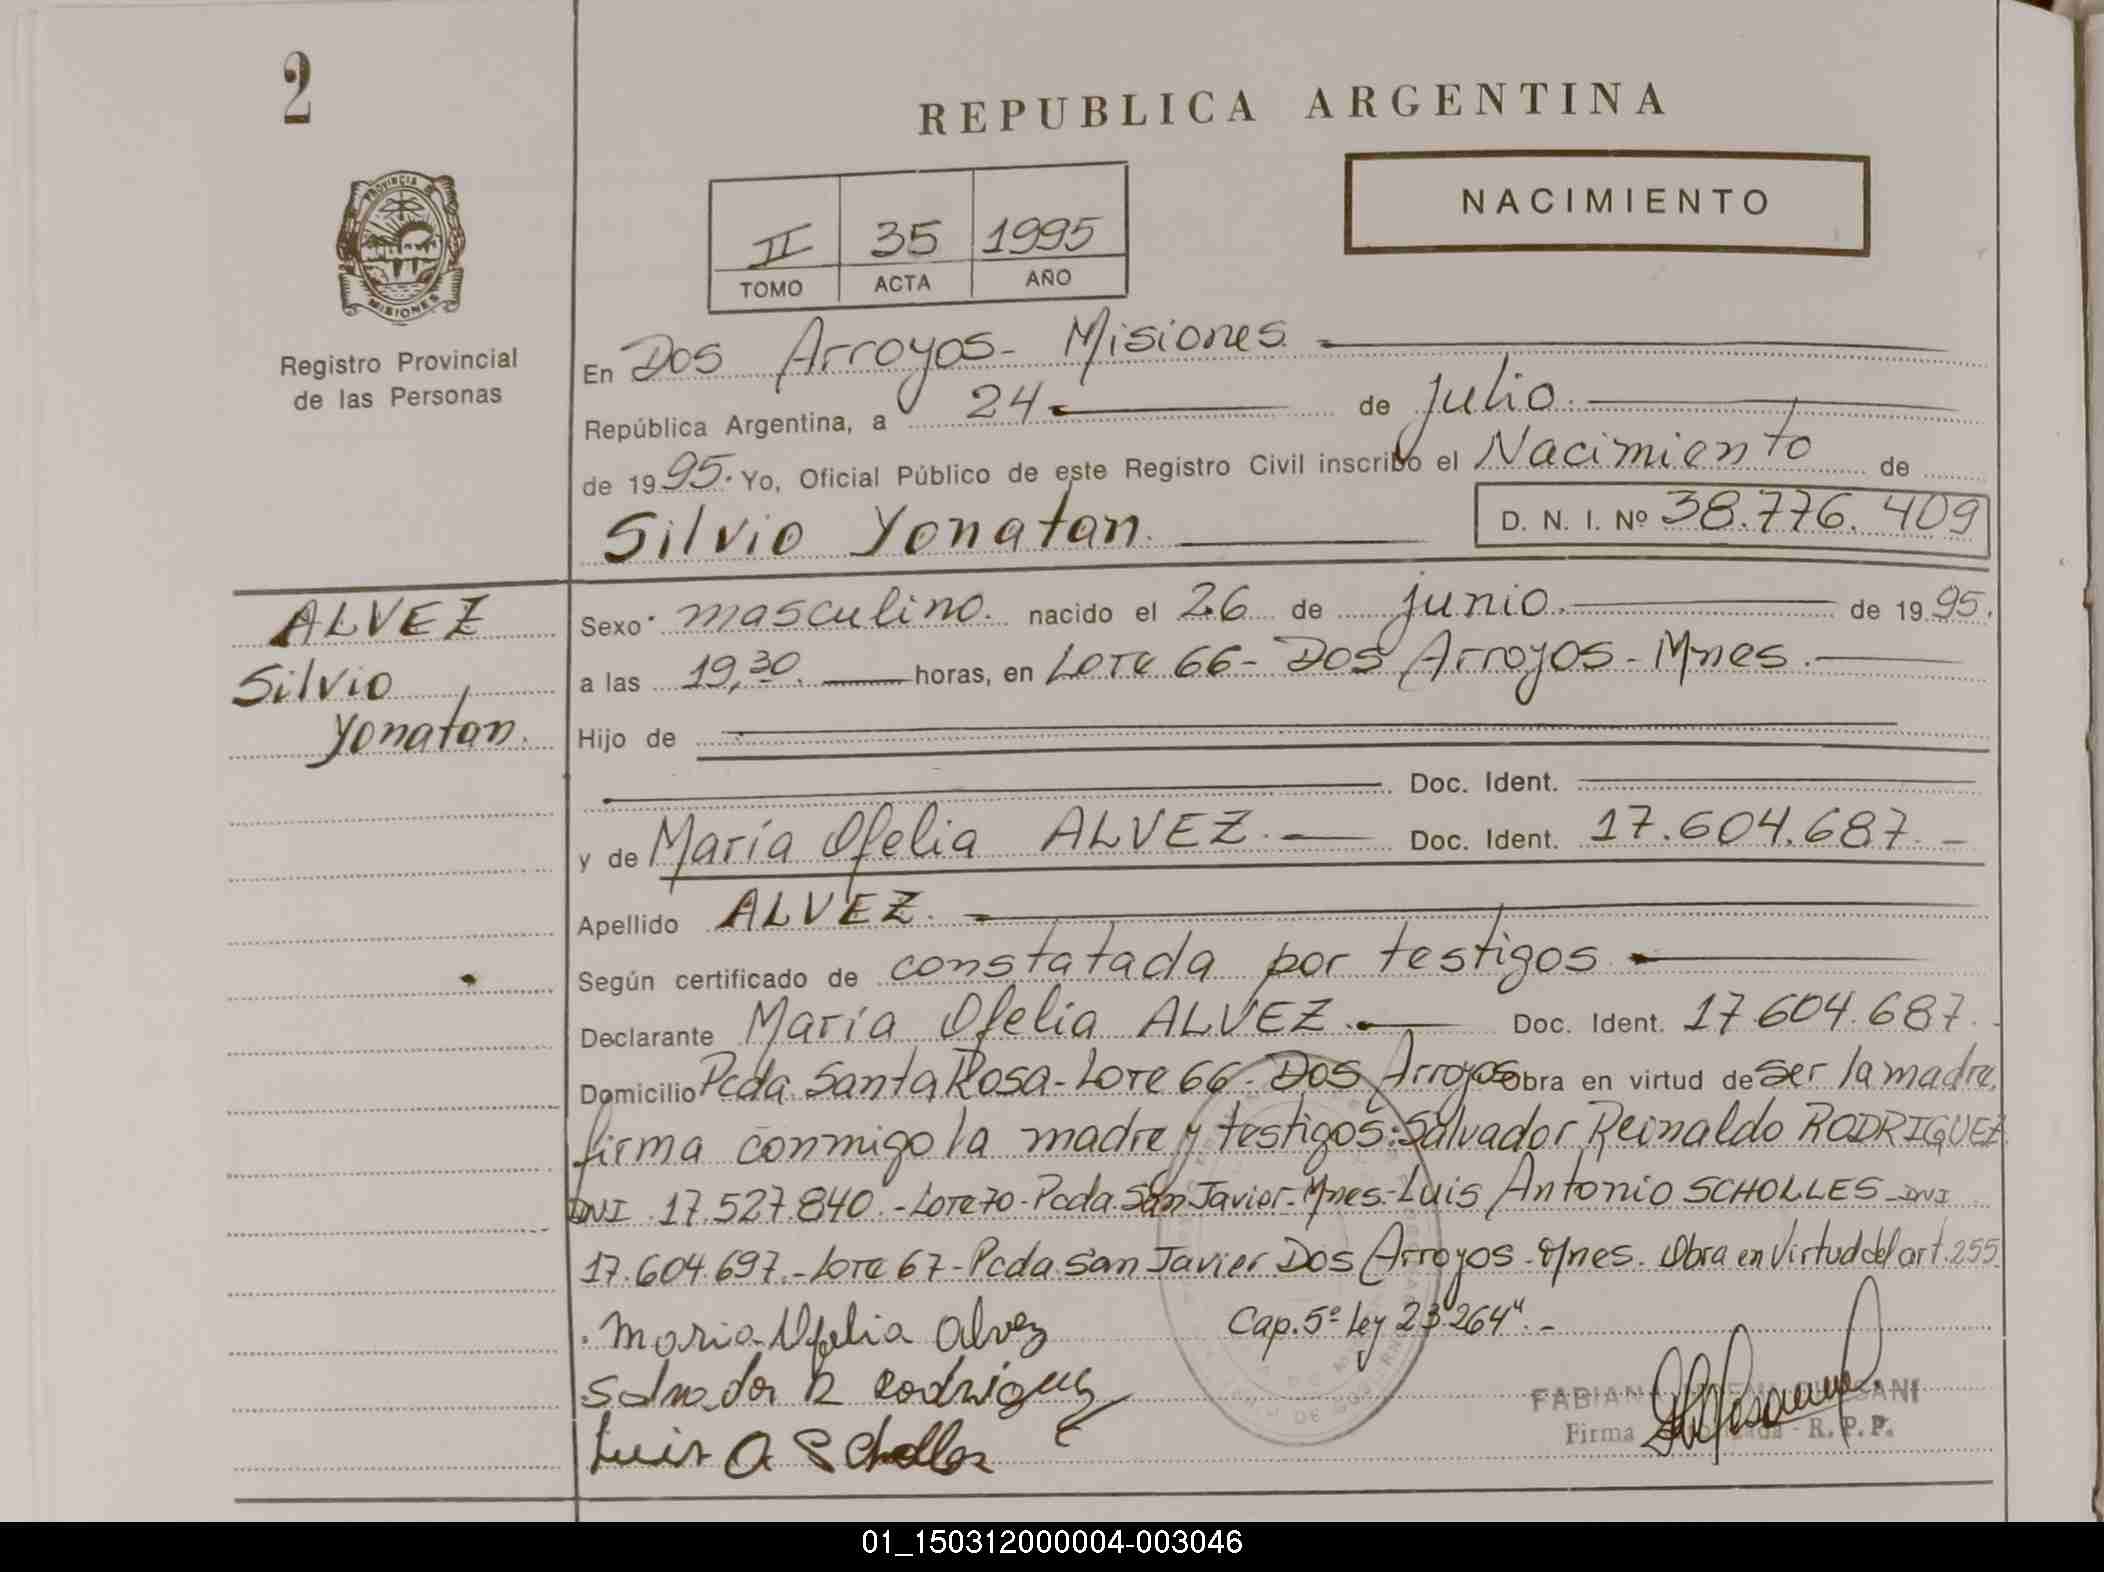 2
REPUBLICA ARGENTINA
NACIMIENTO
PROVINCIA DE
MISIONES
Registro Provincial
de las Personas
II 35 1995
TOMO ACTA AÑO
En Dos Arroyos - Misiones
República Argentina, a 24 de julio.
de 1995. Yo, Oficial Público de este Registro Civil inscribo el Nacimiento de
Silvio Yonatan. D. N. I. Nº 38.776.409
ALVEZ
Silvio
Yonatan.
Sexo masculino. nacido el 26 de junio. de 1995.
a las 19,30. horas, en Lote 66 - Dos Arroyos - Mnes.
Hijo de
Doc. Ident.
y de María Ofelia ALVEZ. Doc. Ident. 17.604.687.-
Apellido ALVEZ.
Según certificado de constatada por testigos
Declarante María Ofelia ALVEZ. Doc. Ident. 17.604.687.
Domicilio Pcda. Santa Rosa - Lote 66 - Dos Arroyos Obra en virtud de ser la madre,
firma conmigo la madre y testigos: Salvador Reinaldo RODRIGUEZ
DNI 17.527.840.- Lote 70 - Pcda. San Javier - Mnes.- Luis Antonio SCHOLLES - DNI
17.604.697.- Lote 67 - Pcda San Javier Dos Arroyos - Mnes. Obra en Virtud del art. 255
Cap. 5º Ley 23.264".-
Maria Ofelia Alvez
Salvador R Rodriguez
Luis A Scholles
FABIANA
Firma - R. P. P.
01_150312000004-003046